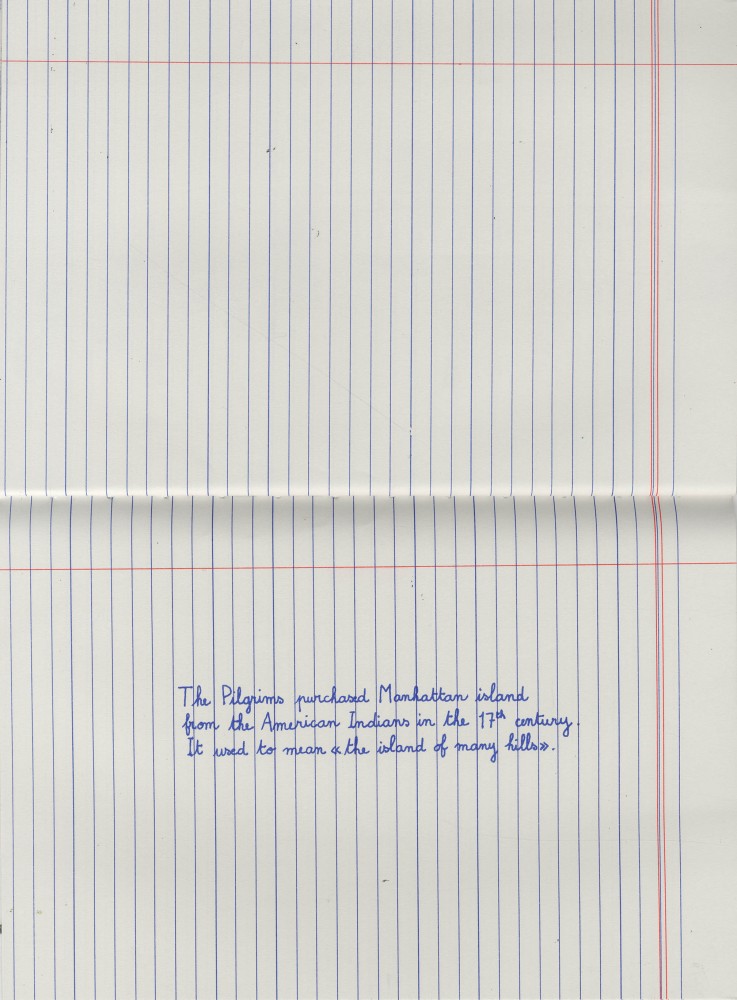 The Pilgrims purchased Manhattan island
from the American Indians in the 17th century.
It used to mean «the island of many hills».